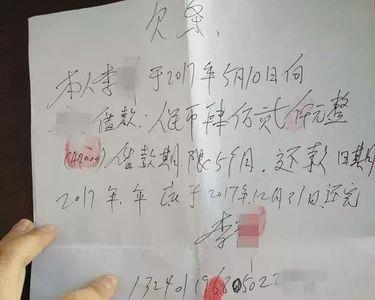 欠条
本人李 于2017年5月10日向
借款:人民币肆仟贰佰元整
(42000)借款期限5个月.还款日期
2017年.年应于2017年12月31日还完
李
132401196805022